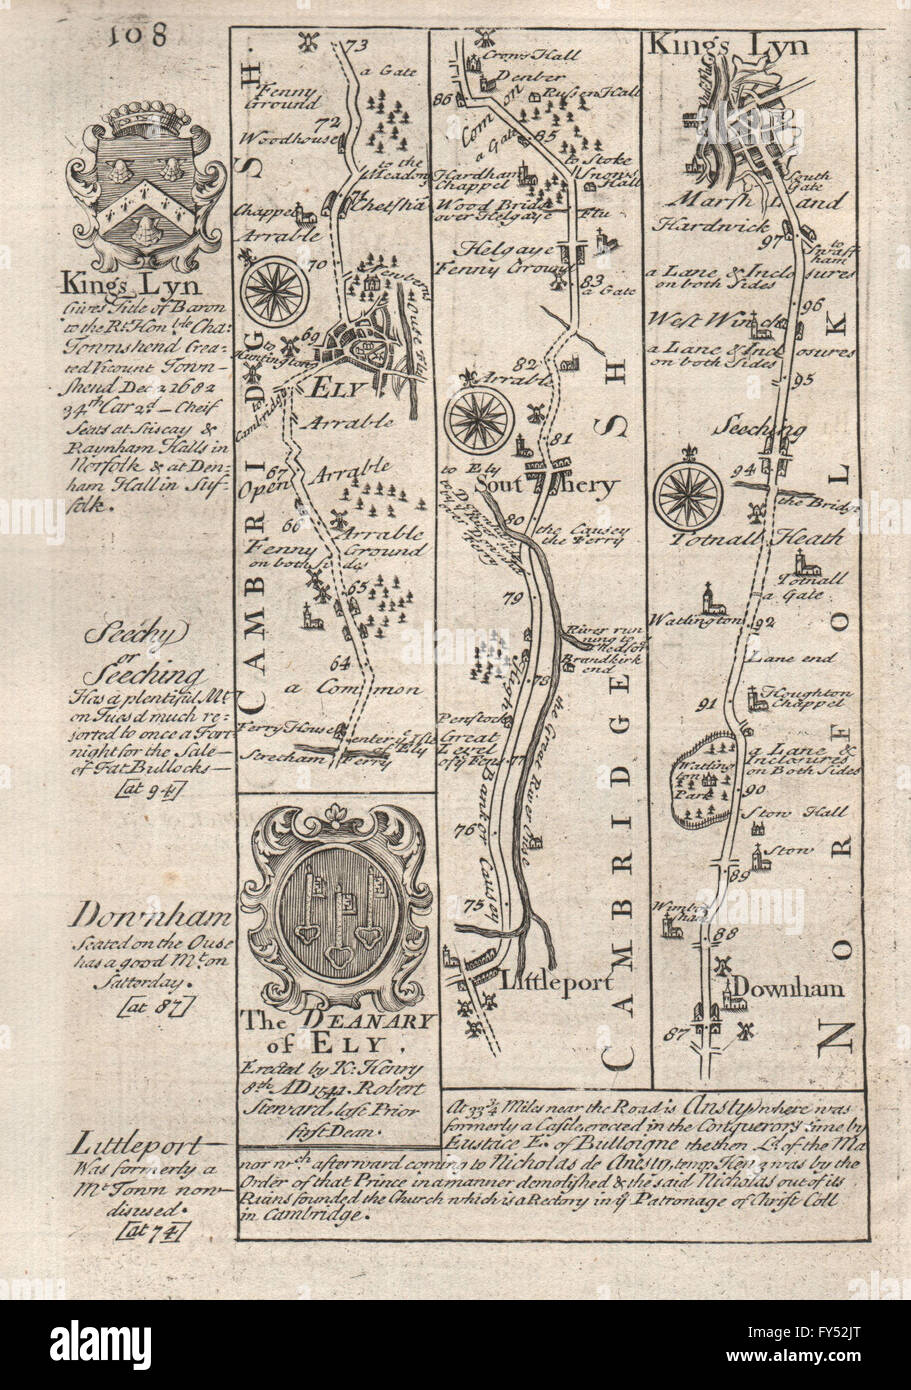 108
Kings Lyn
Gives Title of Baron
to the Rt. Hon.ble Cha:
Townshend Crea-
ted Vicount Town-
shend Dec 2 1682
34th Car 2d — Cheif
Seats at Stiscay &
Raynham Halls in
Norfolk & at Den-
ham Hall in Suf-
folk.
Seechy
or
Seeching
Has a plentiful Mt
on Tuesd much re-
sorted to once a Fort
night for the Sale
of Fat Bullocks
[at 94]
Downham
Seated on the Ouse
has a good Mt. on
Satterday.
[at 87]
Littleport
Was formerly a
Mt Town now
disused.
[at 74]
CAMBRIDG SH.
73
a Gate
Fenny
Ground
72
Woodhouse
to the
Meadow
71
Chetsha
Chappel
Arrable
70
Newbarns
Ouse flu
69
to
Huntington
ELY
to
Cambridge
Arrable
67
Open
Arrable
66
Arrable
Fenny Ground
on both Sides
65
64
a Common
Ferry House
enter ye Isle
of Ely
Streeham Ferry
The DEANARY
of ELY.
Erected by K: Henry
8th AD 1541. Robert
Steward, last Prior
first Dean.
Crows Hall
Denber
86
Russen Hall
Comon
a Gate
85
to Stoke
Hardham
Chappel
Snows
Hall
Wood Bridg
over Helgaye
Flu
Helgaye
Fenny Groun
83
a Gate
82
Arrable
81
to Ely
Southery
80
the Causey
the Ferry
79
River run
ning to
Brandkirk
end
78
High
Penstocks
Great
Level
of ye Fens
77
the Great River Ouse
Bank or Causey
76
75
Littleport
CAMBRIDGE SH
Kings Lyn
South
Gate
Marsh Land
Hardwick
97
to
Swaff
ham
a Lane & Inclosures
on both Sides
96
West Winch
a Lane & Inclosures
on both Sides
95
Seeching
94
the Bridg
Totnall Heath
Totnall
a Gate
Watlington
92
Lane end
91
Houghton
Chappel
a Lane &
Inclosures
on Both Sides
Watling
ton
Park
90
Stow Hall
Stow
89
Wimbot
sham
88
Downham
87
NORFOLK
At 33¾ Miles near the Road is Ansty where was
formerly a Castle erected in the Conquerors time by
Eustace E. of Bulloigne the then Ld. of the Ma
nor wch. afterward coming to Nicholas de Anesty, temp Hen 3 was by the
Order of that Prince in a manner demolished & the said Nicholas out of its
Ruins founded the Church which is a Rectory in ye Patronage of Christ Coll
in Cambridge.
alamy
alamy stock photo
FY52JT
www.alamy.com